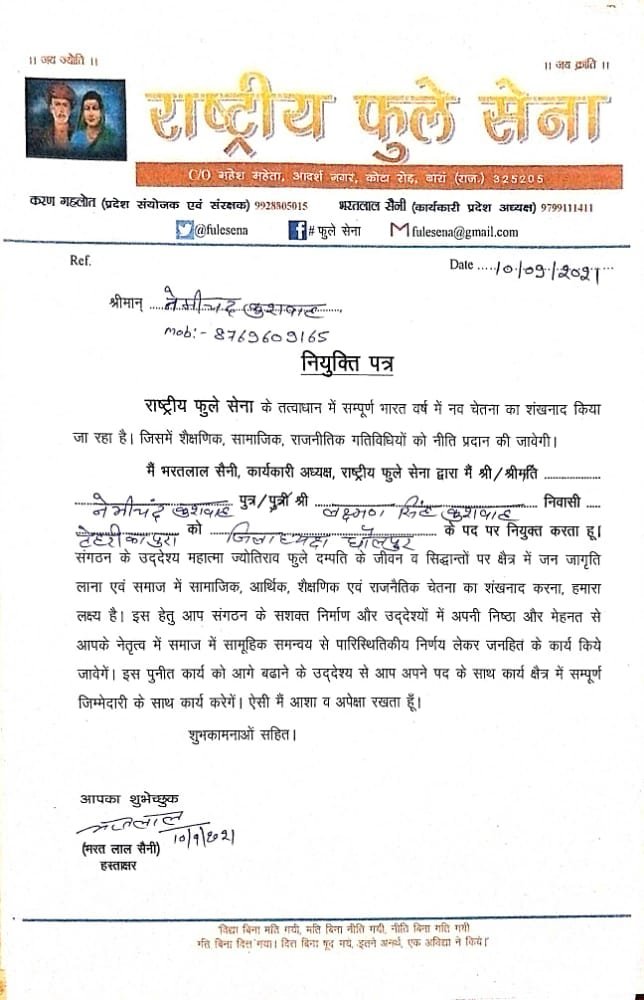 ।। जय ज्योति ।।
।। जय क्रांति ।।
राष्ट्रीय फुले सेना
C/O महेश मेहता, आदर्श नगर, कोटा रोड़, बारां (राज.) 325205
करण गहलोत (प्रदेश संयोजक एवं संरक्षक) 9928805015 भरतलाल सैनी (कार्यकारी प्रदेश अध्यक्ष) 9799111411
@fulesena # फुले सेना fulesena@gmail.com
Ref. Date .....10/09/2021
श्रीमान् नेमीचंद कुशवाह
mob:- 8769609165
नियुक्ति पत्र
राष्ट्रीय फुले सेना के तत्वाधान में सम्पूर्ण भारत वर्ष में नव चेतना का शंखनाद किया
जा रहा है। जिसमें शैक्षणिक, सामाजिक, राजनीतिक गतिविधियों को नीति प्रदान की जावेगी।
मैं भरतलाल सैनी, कार्यकारी अध्यक्ष, राष्ट्रीय फुले सेना द्वारा मैं श्री/श्रीमृति ..................
नेमीचंद कुशवाह पुत्र/पुत्री श्री लक्ष्मण सिंह कुशवाह निवासी ....
टेहरी का पुरा को जिलाध्यक्ष धौलपुर के पद पर नियुक्त करता हू।
संगठन के उद्देश्य महात्मा ज्योतिराव फूले दम्पति के जीवन व सिद्धान्तों पर क्षैत्र में जन जागृति
लाना एवं समाज में सामाजिक, आर्थिक, शैक्षणिक एवं राजनैतिक चेतना का शंखनाद करना, हमारा
लक्ष्य है। इस हेतु आप संगठन के सशक्त निर्माण और उद्देश्यों में अपनी निष्ठा और मेहनत से
आपके नेतृत्व में समाज में सामूहिक समन्वय से पारिस्थितिकीय निर्णय लेकर जनहित के कार्य किये
जावेगें। इस पुनीत कार्य को आगे बढाने के उद्देश्य से आप अपने पद के साथ कार्य क्षैत्र में सम्पूर्ण
जिम्मेदारी के साथ कार्य करेगें। ऐसी मैं आशा व अपेक्षा रखता हूँ।
शुभकामनाओं सहित।
आपका शुभेच्छुक
भरतलाल
10/9/2021
(भरत लाल सैनी)
हस्ताक्षर
'विद्या बिना मति गयी, मति बिना नीति गयी, नीति बिना गति गयी
गति बिना वित्त गया। वित्त बिना शूद गये, इतने अनर्थ, एक अविद्या ने किये।'